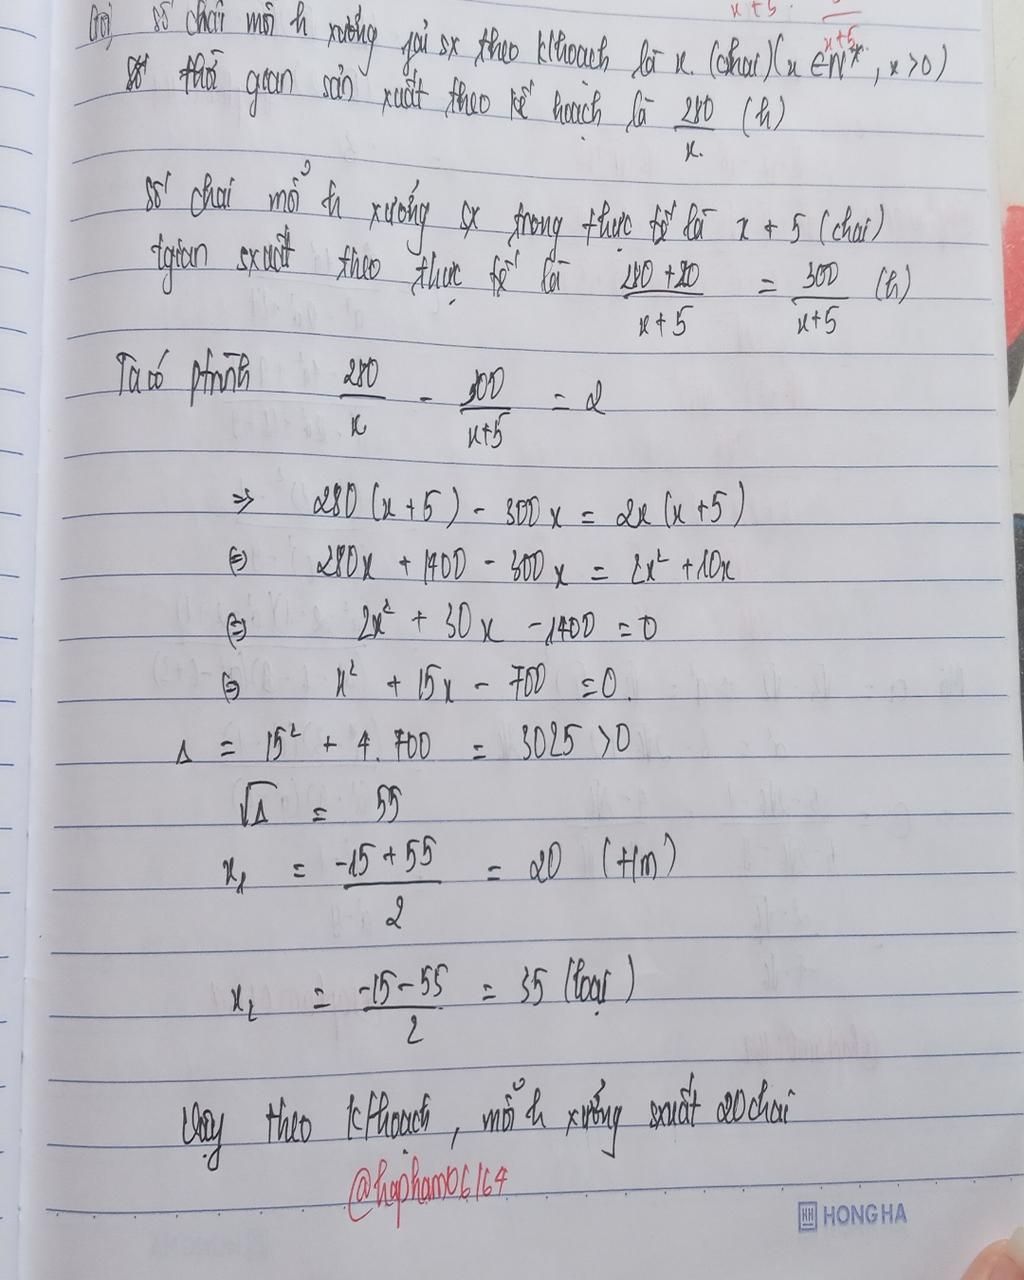 x+5
x+5
Gọi số chai mỗi h xưởng phải sx theo khoạch là x. (chai) (x ∈ N*, x > 0)
thời gian sản xuất theo kế hoạch là 280/x (h)
Số chai mỗi h xưởng sx trong thực tế là x + 5 (chai)
tgian sxuất theo thực tế là (280 + 20)/(x + 5) = 300/(x+5) (h)
Ta có ptrình 280/x - 300/(x+5) = 2
⇒ 280(x + 5) - 300x = 2x(x + 5)
⇔ 280x + 1400 - 300x = 2x² + 10x
⇔ 2x² + 30x - 1400 = 0
⇔ x² + 15x - 700 = 0.
Δ = 15² + 4.700 = 3025 > 0
√Δ = 55
x₁ = (-15 + 55)/2 = 20 (t/m)
x₂ = (-15 - 55)/2 = 35 (loại)
Vậy theo khoạch, mỗi h xưởng sxuất 20 chai
@hapham06164
HH HONG HA